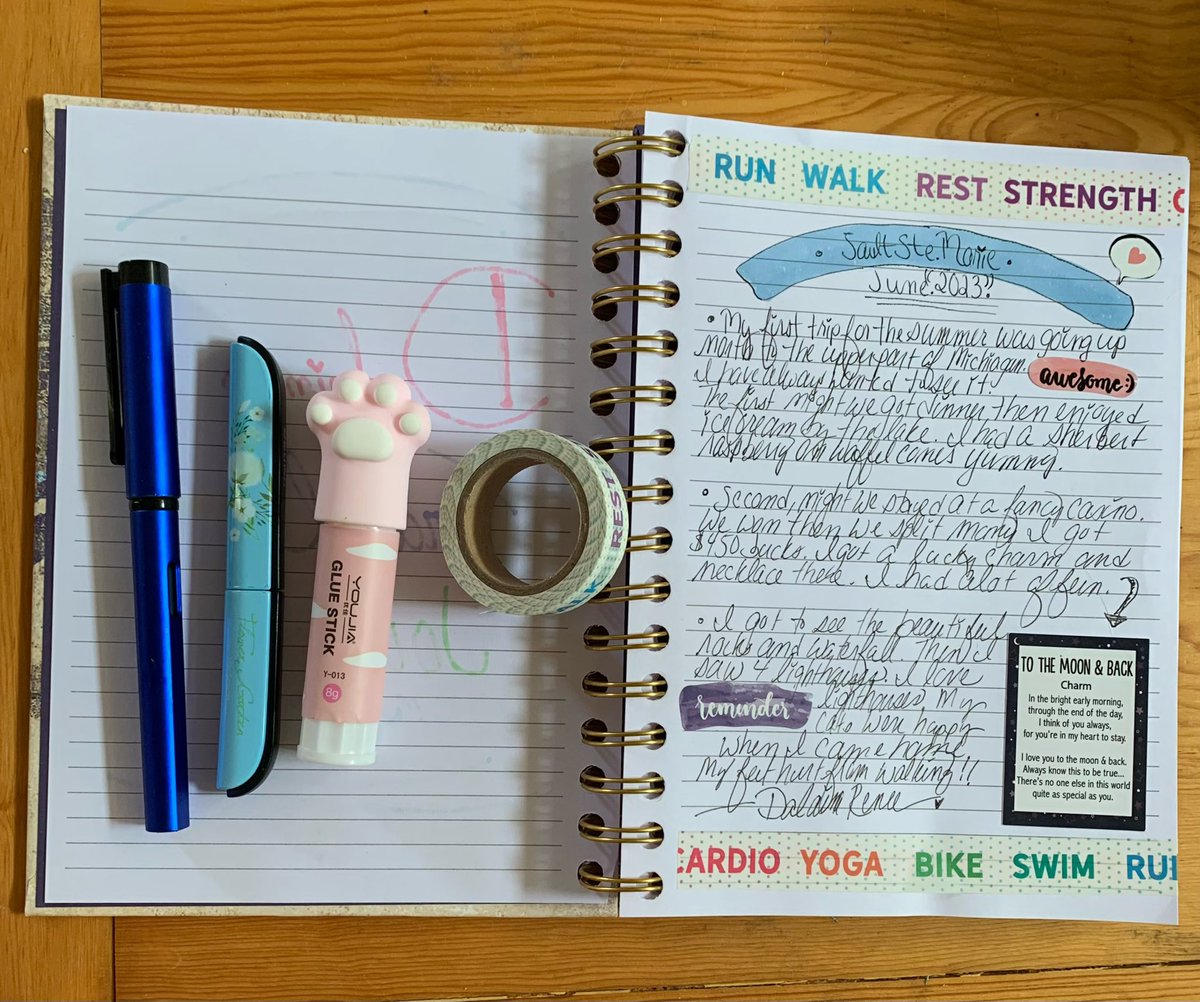 RUN WALK REST STRENGTH
Sault Ste. Marie
June 2023!!
• My first trip for the summer was going up
north to the upper part of Michigan.
awesome :)
I have always wanted to see it.
The first night we got dinner then enjoyed
ice cream by the lake. I had a sherbert
raspberry on waffel cones yummy.
• Second night we stayed at a fancy casino.
We won then we spent money I got
$450 bucks. I got a lucky charm and
necklace there. I had alot of fun.
• I got to see the beautiful
rocks and waterfall. Then I
saw 4 lighthouses. I love
reminder
lighthouses My
cats were happy
when I came home
My feet hurt from walking!!
Renee
TO THE MOON & BACK
Charm
In the bright early morning,
through the end of the day,
I think of you always,
for you're in my heart to stay.
I love you to the moon & back.
Always know this to be true...
There's no one else in this world
quite as special as you.
CARDIO YOGA BIKE SWIM RU
YOUJIA
GLUE STICK
Y-013
8g
REST